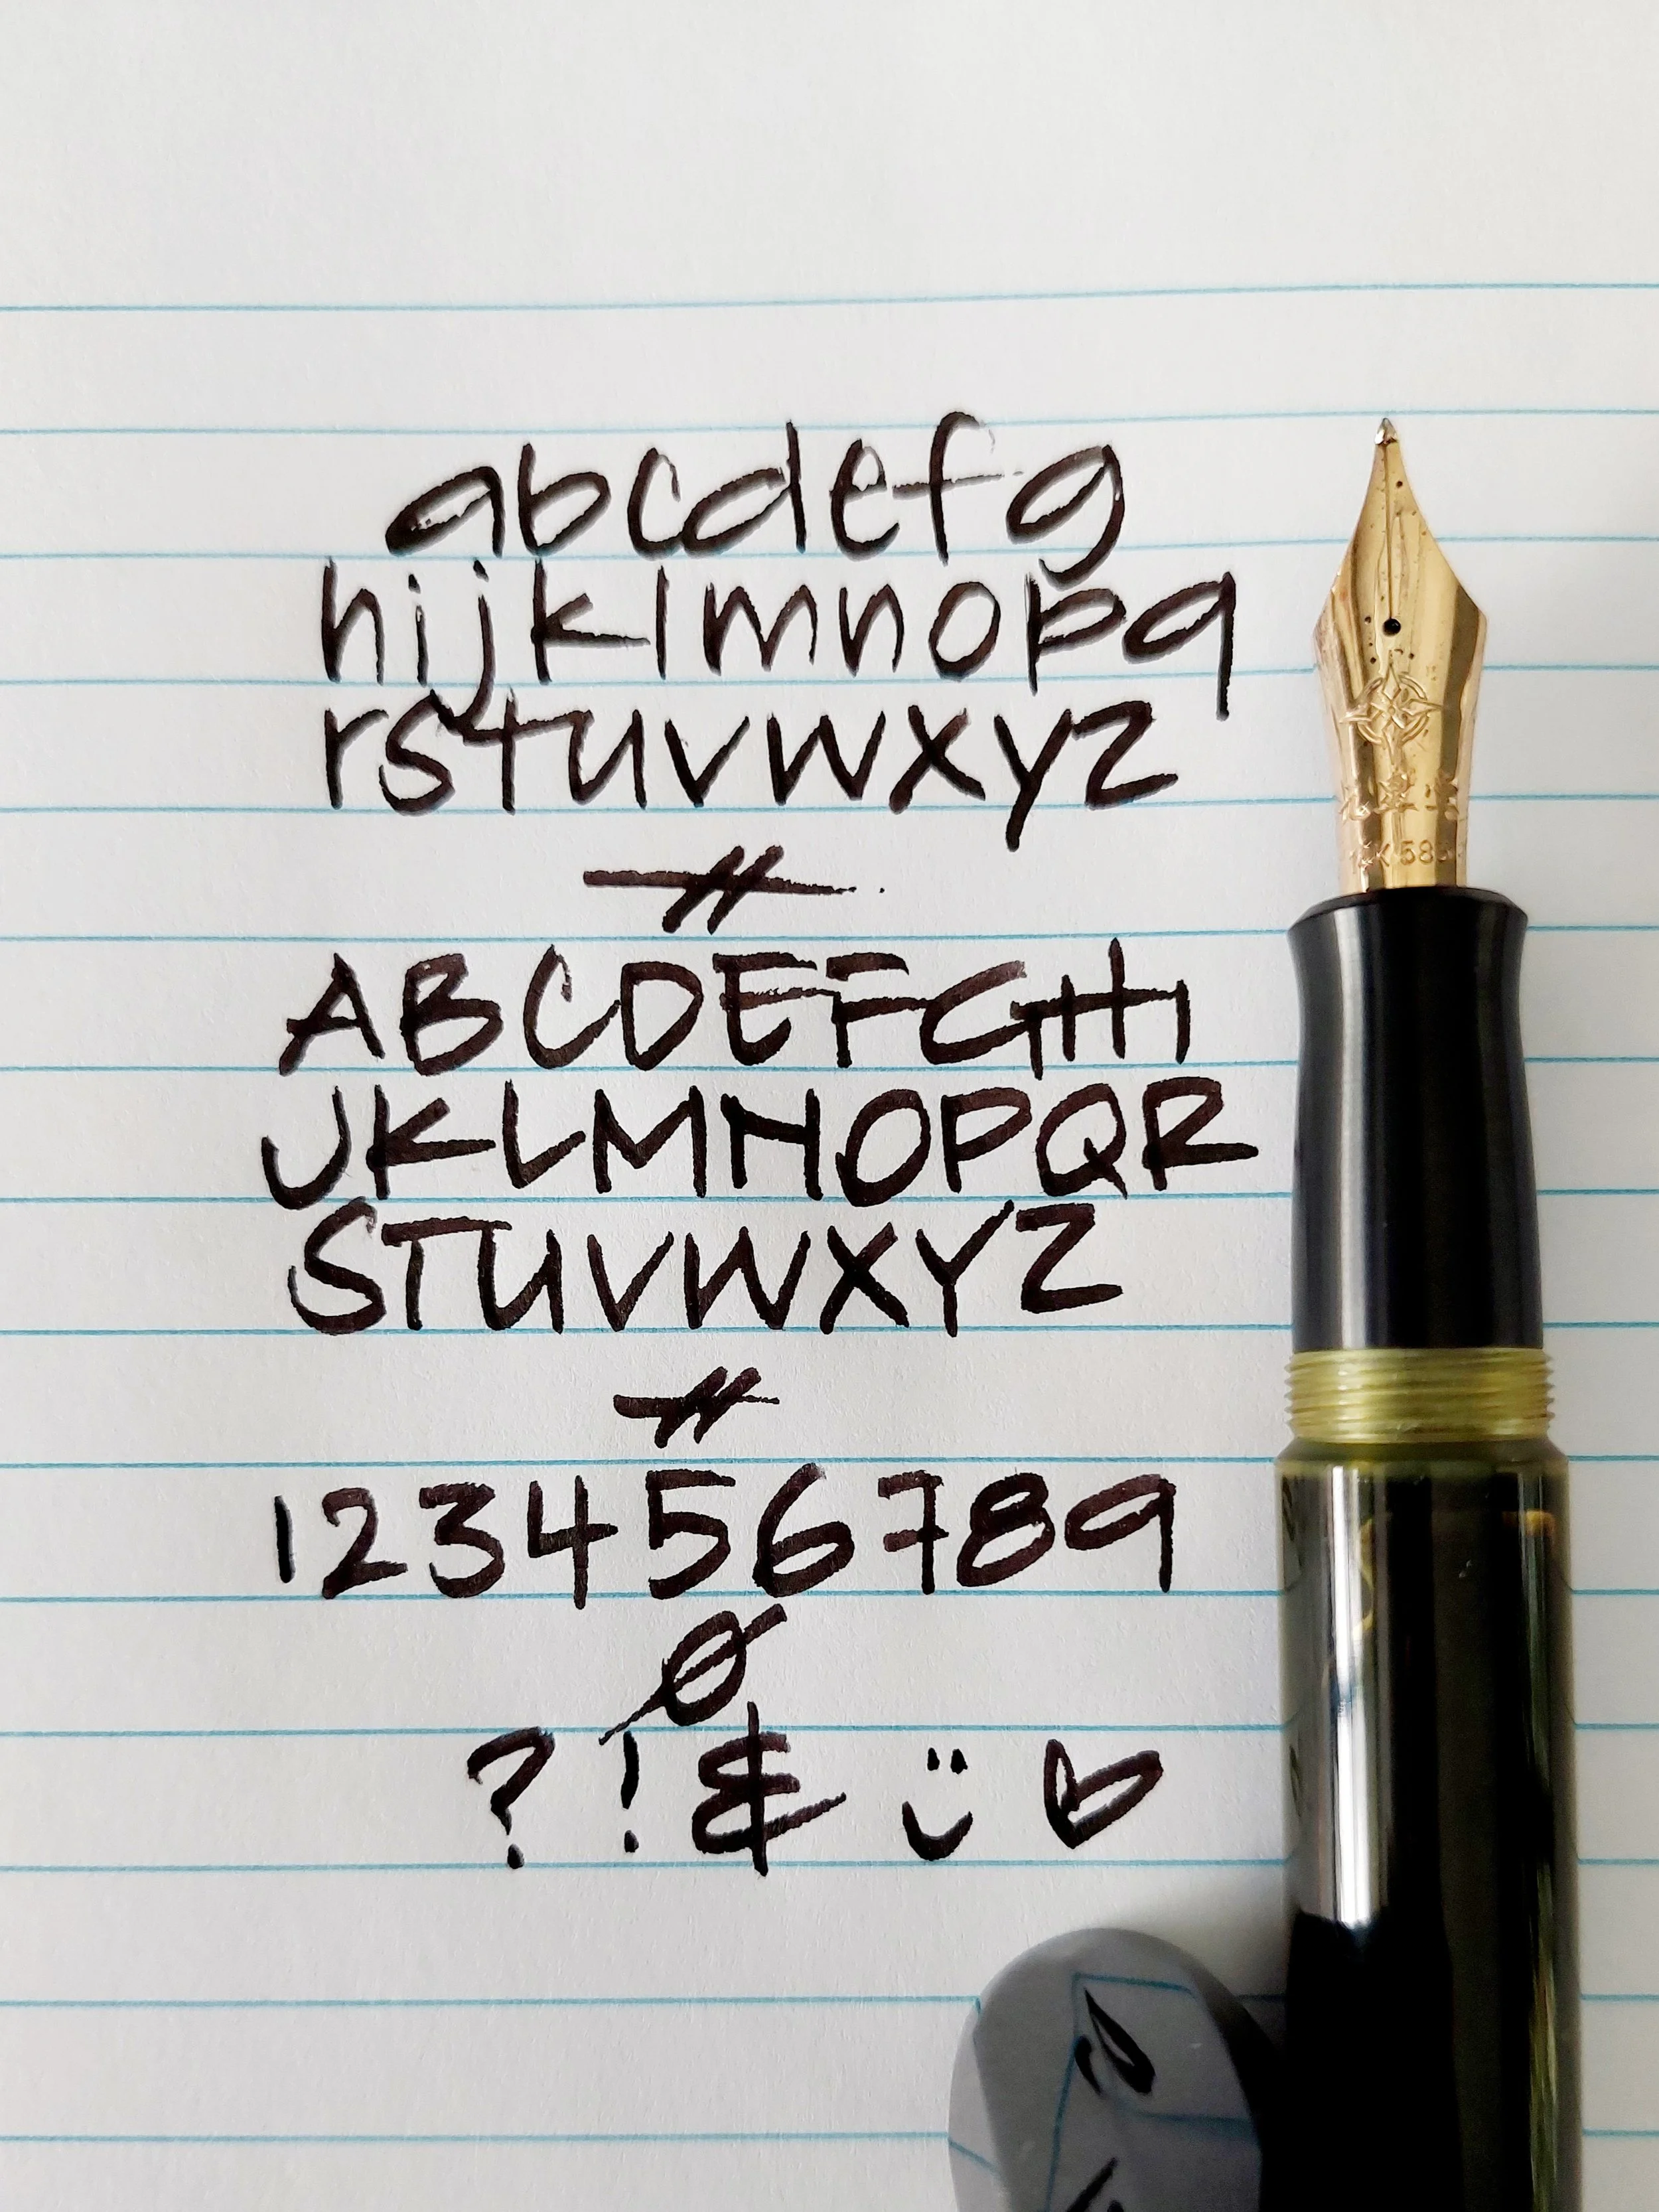 abcdefg
hijklmnopq
rstuvwxyz
ABCDEFGHI
JKLMNOPQR
STUVWXYZ
123456789
0
? ! & :) ♡
14K 585